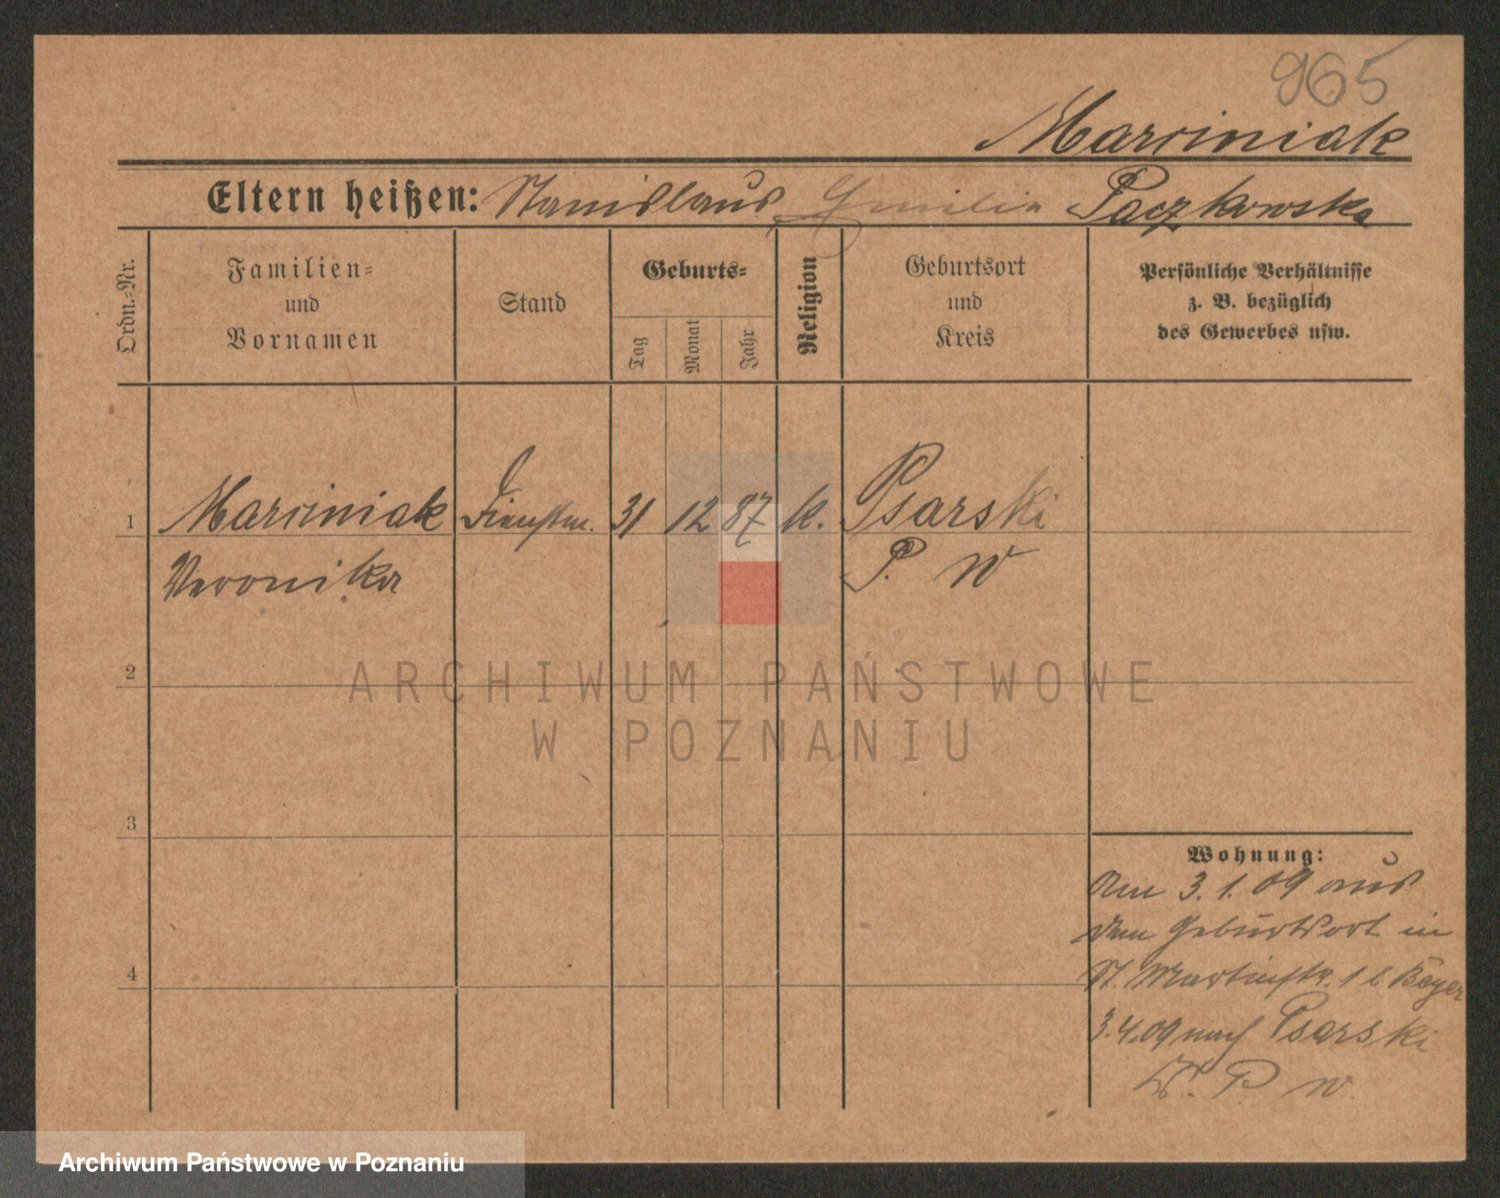 965
Marciniak
Eltern heißen: Stanislaus Emilia Paczkowska
Ordn.-Nr.
Familien-
und
Vornamen
Stand
Geburts-
Tag
Monat
Jahr
Religion
Geburtsort
und
Kreis
Persönliche Verhältnisse
z. B. bezüglich
des Gewerbes usw.
1 Marciniak Dienstm. 31 12 87 k. Psarski
Veronika P. W
2
3
4
Wohnung:
Am 3.1.09 aus
dem Geburtsort in
St. Martinstr. 1 b. Beyer
3.4.09 nach Psarski
K. P. W.
ARCHIWUM PAŃSTWOWE
W POZNANIU
Archiwum Państwowe w Poznaniu